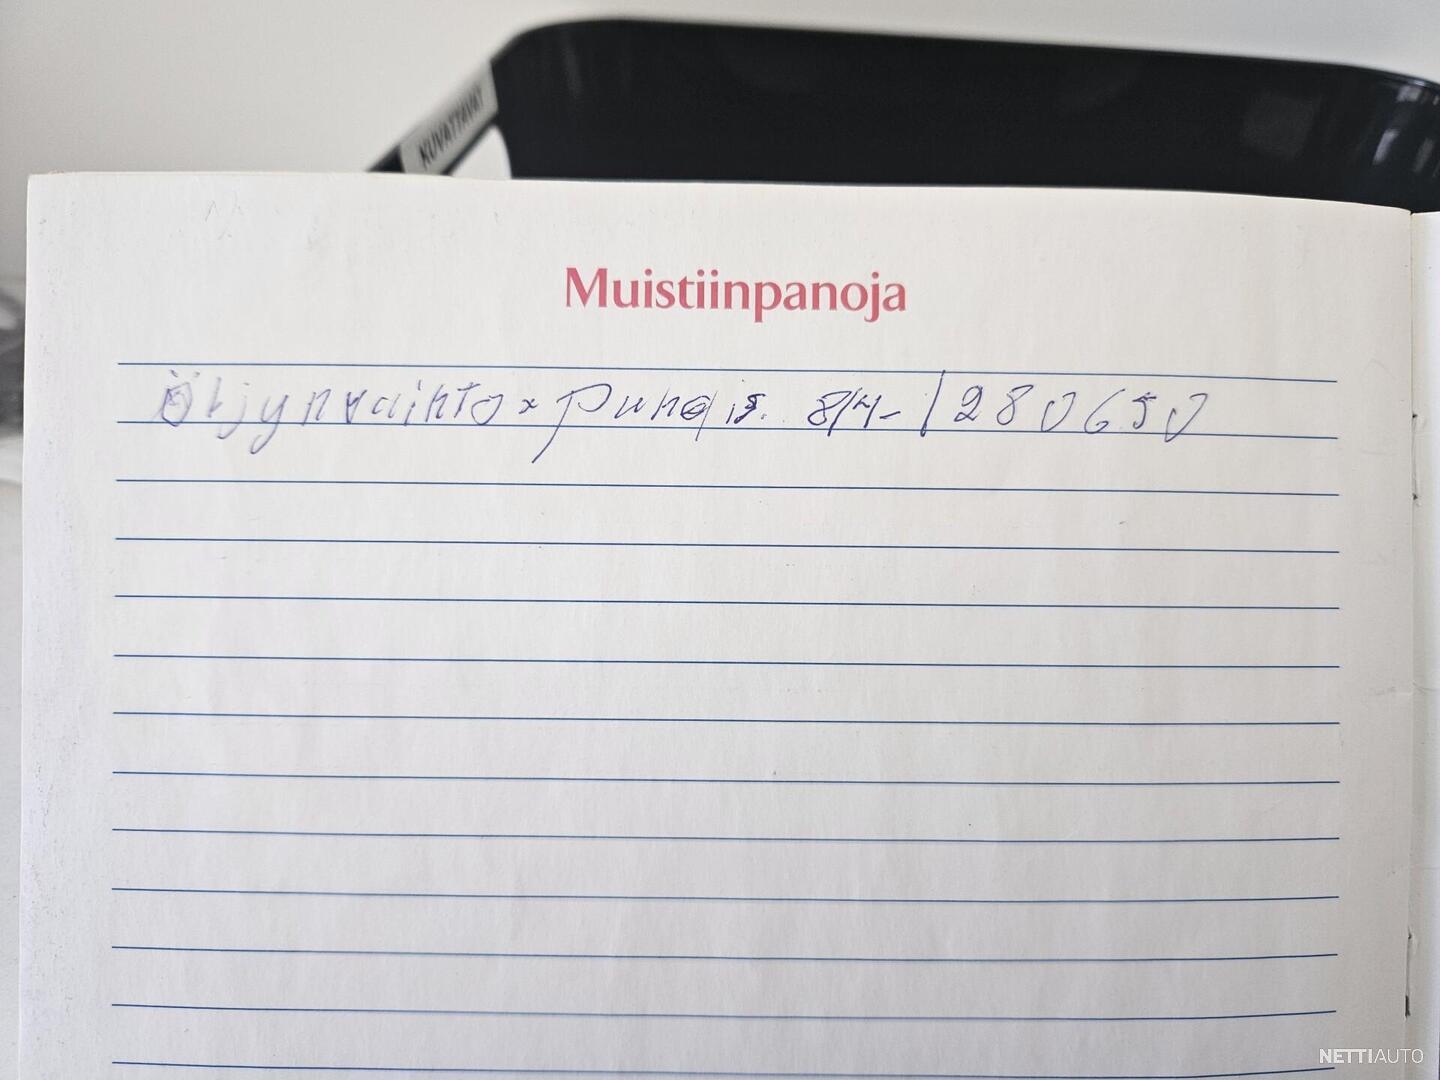 KUVATTAVAT
Muistiinpanoja
Öljynvaihto x puhdis. 8/4- | 280650
NETTIAUTO